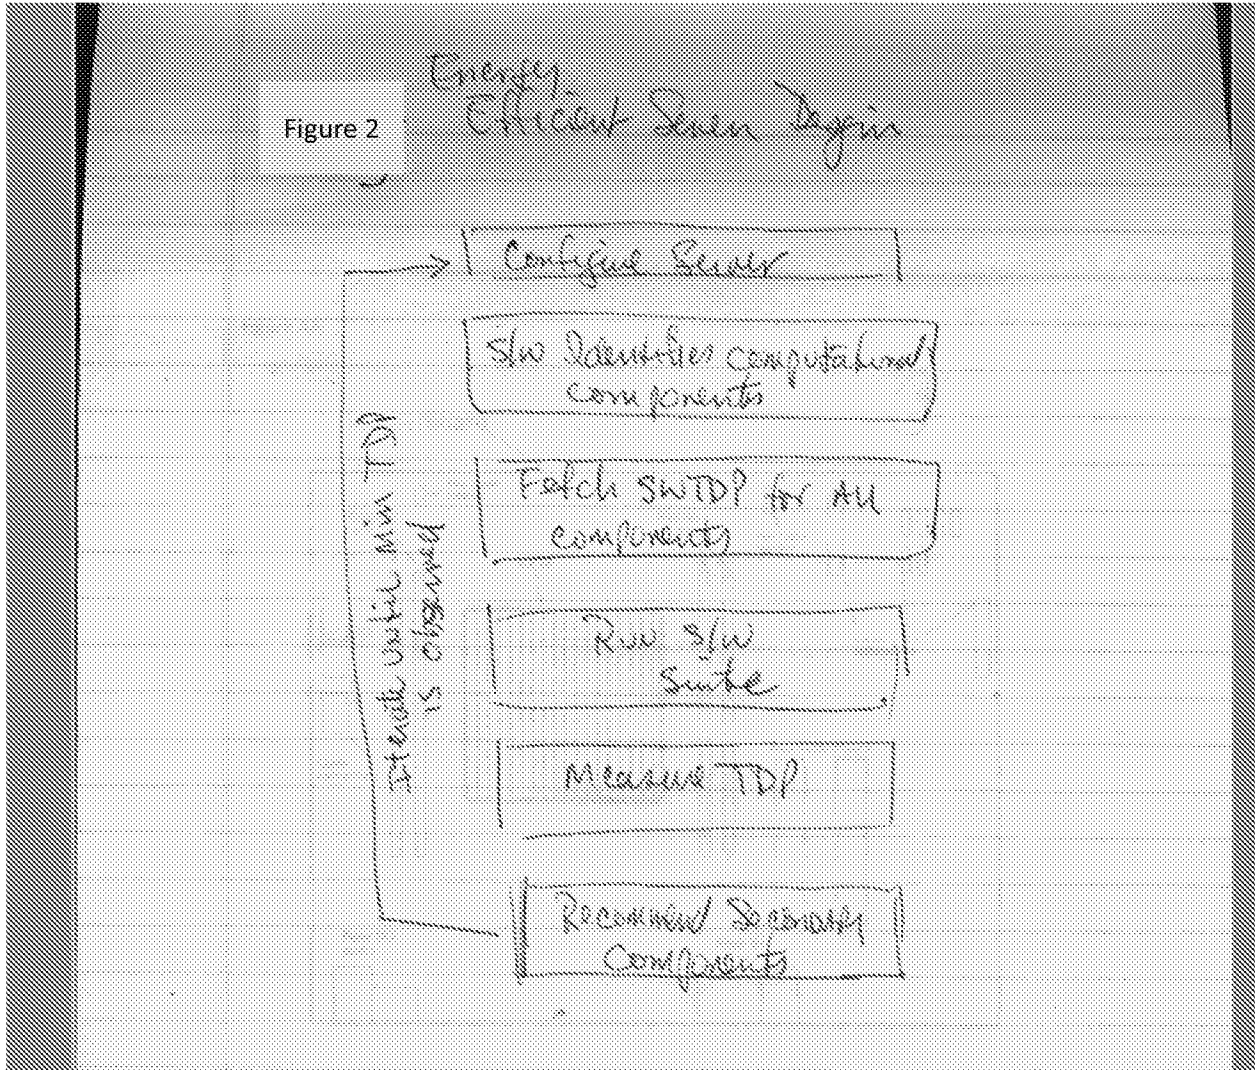 Energy
Figure 2
Efficient Server Design
Configure Server
S/W Identifies computational
components
Fetch SWTDP for All
components
Run S/W
Suite
Measure TDP
Recommend Secondary
Components
Iterate until Min TDP
is observed